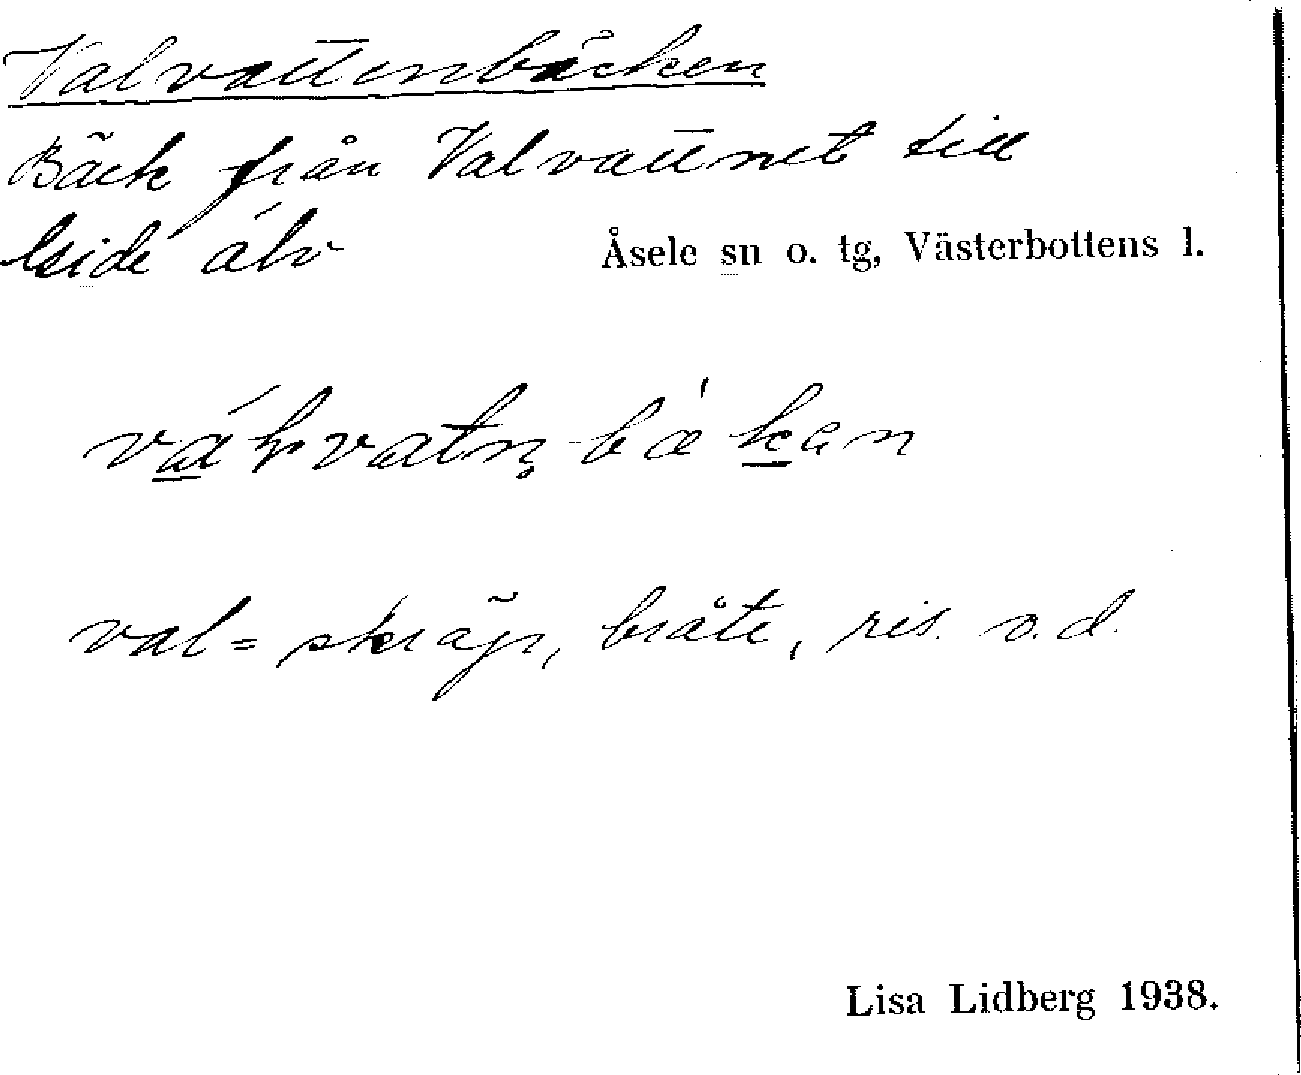 Valvattenbäcken
Bäck från Valvattnet till
älv
Åsele sn o. tg, Västerbottens l.
val = skräp, bråte, ris. o.d.
Lisa Lidberg 1938.